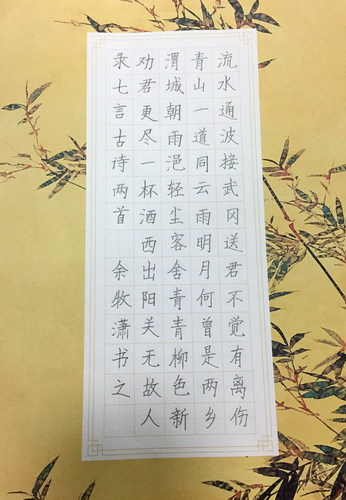 流水通波接武冈送君不觉有离伤
青山一道同云雨明月何曾是两乡
渭城朝雨浥轻尘客舍青青柳色新
劝君更尽一杯酒西出阳关无故人
录七言古诗两首 余牧潇书之